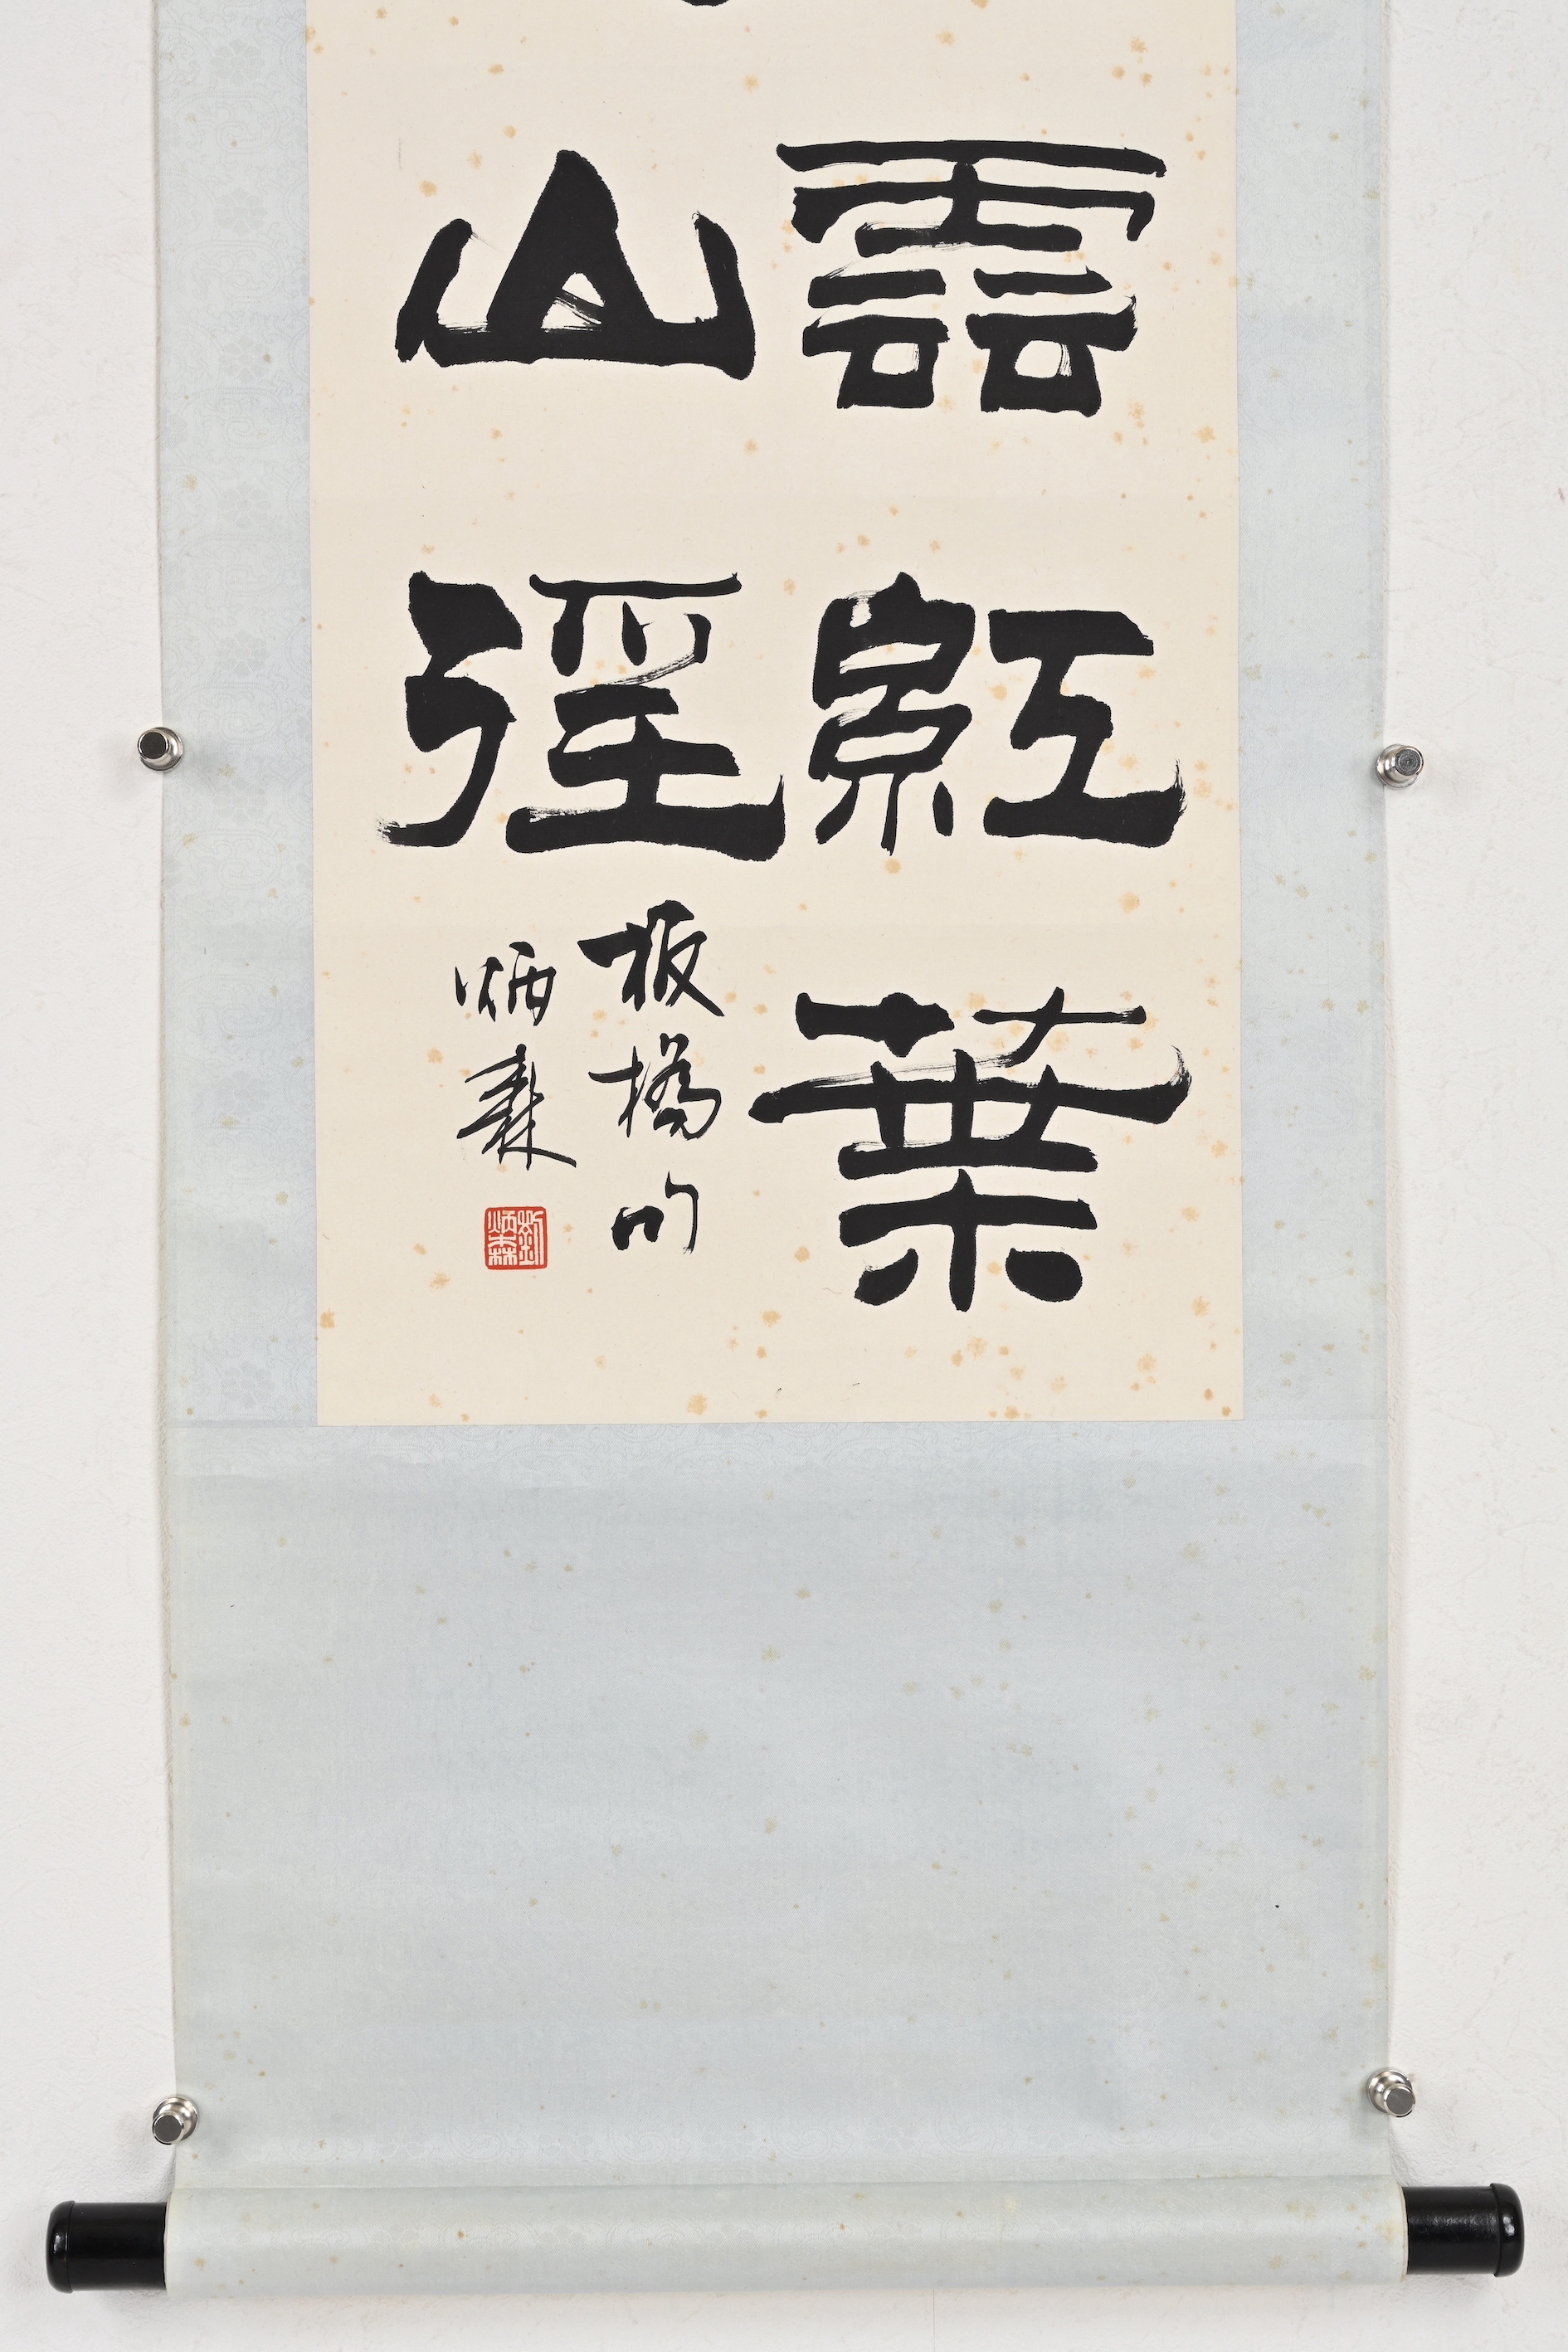 雲紅葉
山徑
板橋句
炳森
劉炳森